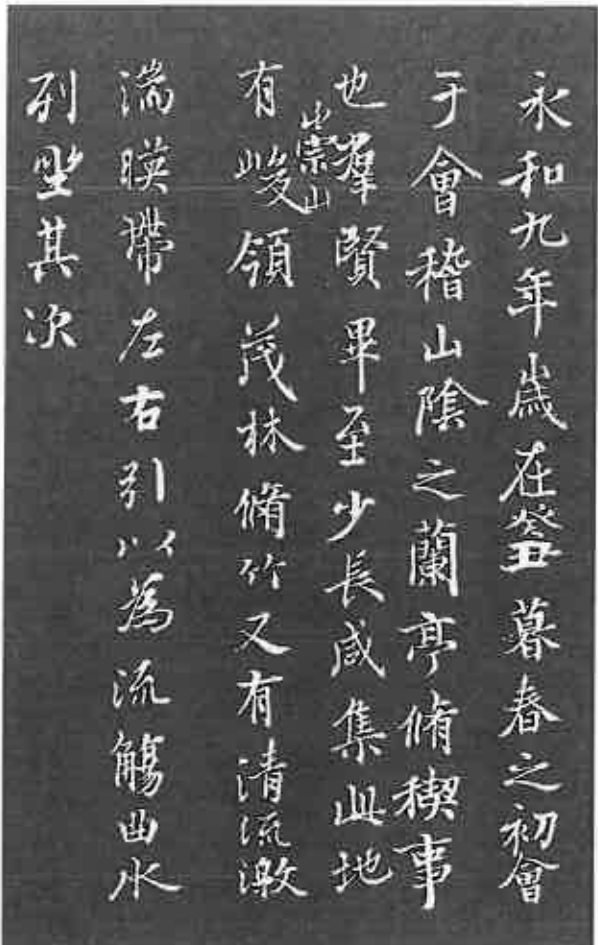 永和九年歲在癸丑暮春之初會
于會稽山陰之蘭亭脩稧事
也羣賢畢至少長咸集此地
有崇山峻領茂林脩竹又有清流激
湍暎帶左右引以為流觴曲水
列坐其次